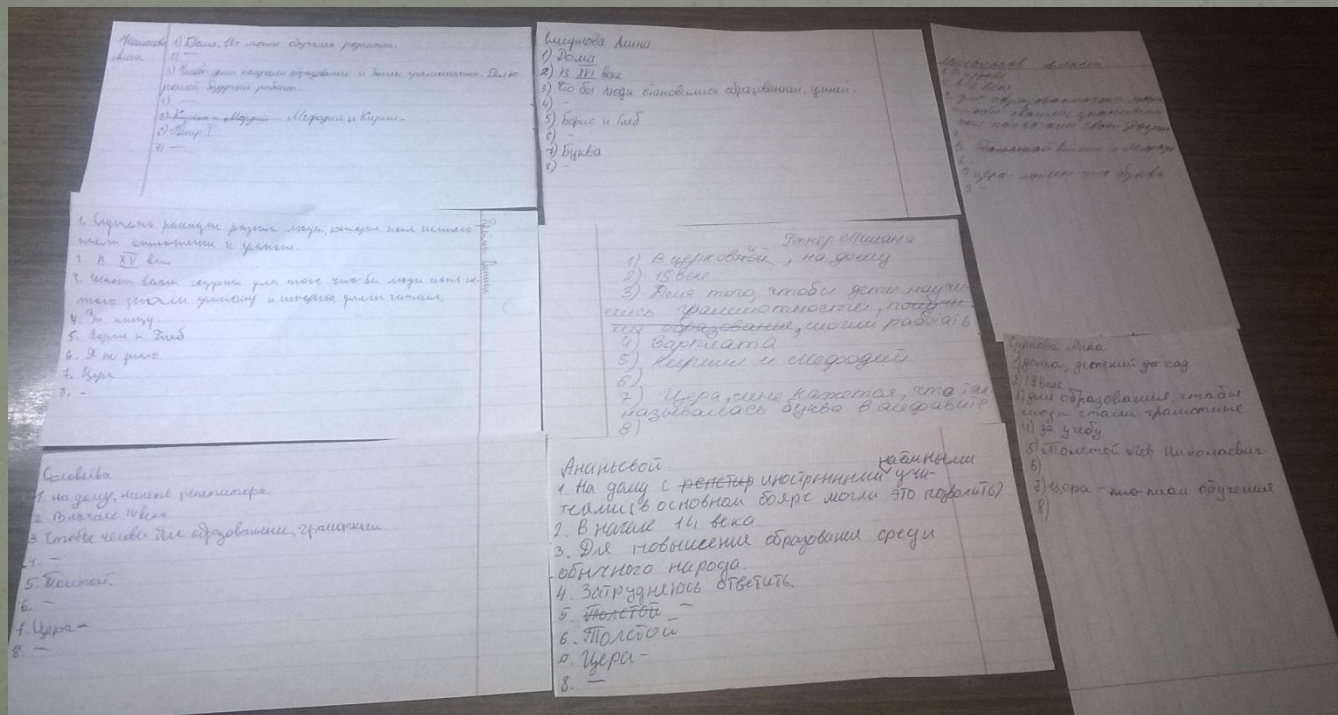 1) Дома. Их мамы обучали родители.
2) —
3) Чтобы дети получали образование и были грамотными. Для хо-
рошей будущей работы.
4) —
5) Мефодий и Кирилл.
6) Пётр I
7) —
Смирнова Алина
1) Дома
2) В XVI веке
3) Что бы люди становились образованней, умней.
4) -
5) Борис и Глеб
6) -
7) Буква
8) -
Алексей
1. В церкви
3. для образованности людей
5. Толстой и Мефодий
6. -
7. цера - может это буква
8. -
1. Слушать рассказы разных людей, которые имели
отношение к урокам.
2. В XV веке
3. Школы были созданы для того, что бы люди
знали грамоту и историю, умели читать,
4. За пищу.
5. Борис и Глеб
6. Я не знаю
7. Цера
8. -
Гопнер Милана
1) В церковной, на дому
2) 15 веке
3) Для того, чтобы дети научи-
лись грамотности, получи-
ли образование, смогли работать
4) Зарплата
5) Кирилл и Мефодий
6)
7) Цера, мне кажется, что так
называлась буква в алфавите
8)
Суркова Анна
1) дома, детский до сад
2) 18 век
3) для образования, чтобы
люди стали грамотные
4) за учёбу
5) Толстой Лев Николаевич
6)
7) цера - план обучения
8)
Соловьёва
1. На дому, нанимая репетитора.
2. В начале 14 века.
3. Чтобы образованным, грамотным
4. —
5. Толстой.
6. —
7. Цера -
8. —
Ананьевой
1. На дому с репетир наёмными иностранными учи-
телями (в основном бояре могли это позволить)
2. В начале 14 века.
3. Для повышения образования среди
обычного народа.
4. Затрудняюсь ответить.
5. Толстой —
6. Толстой
Цера -
8. —